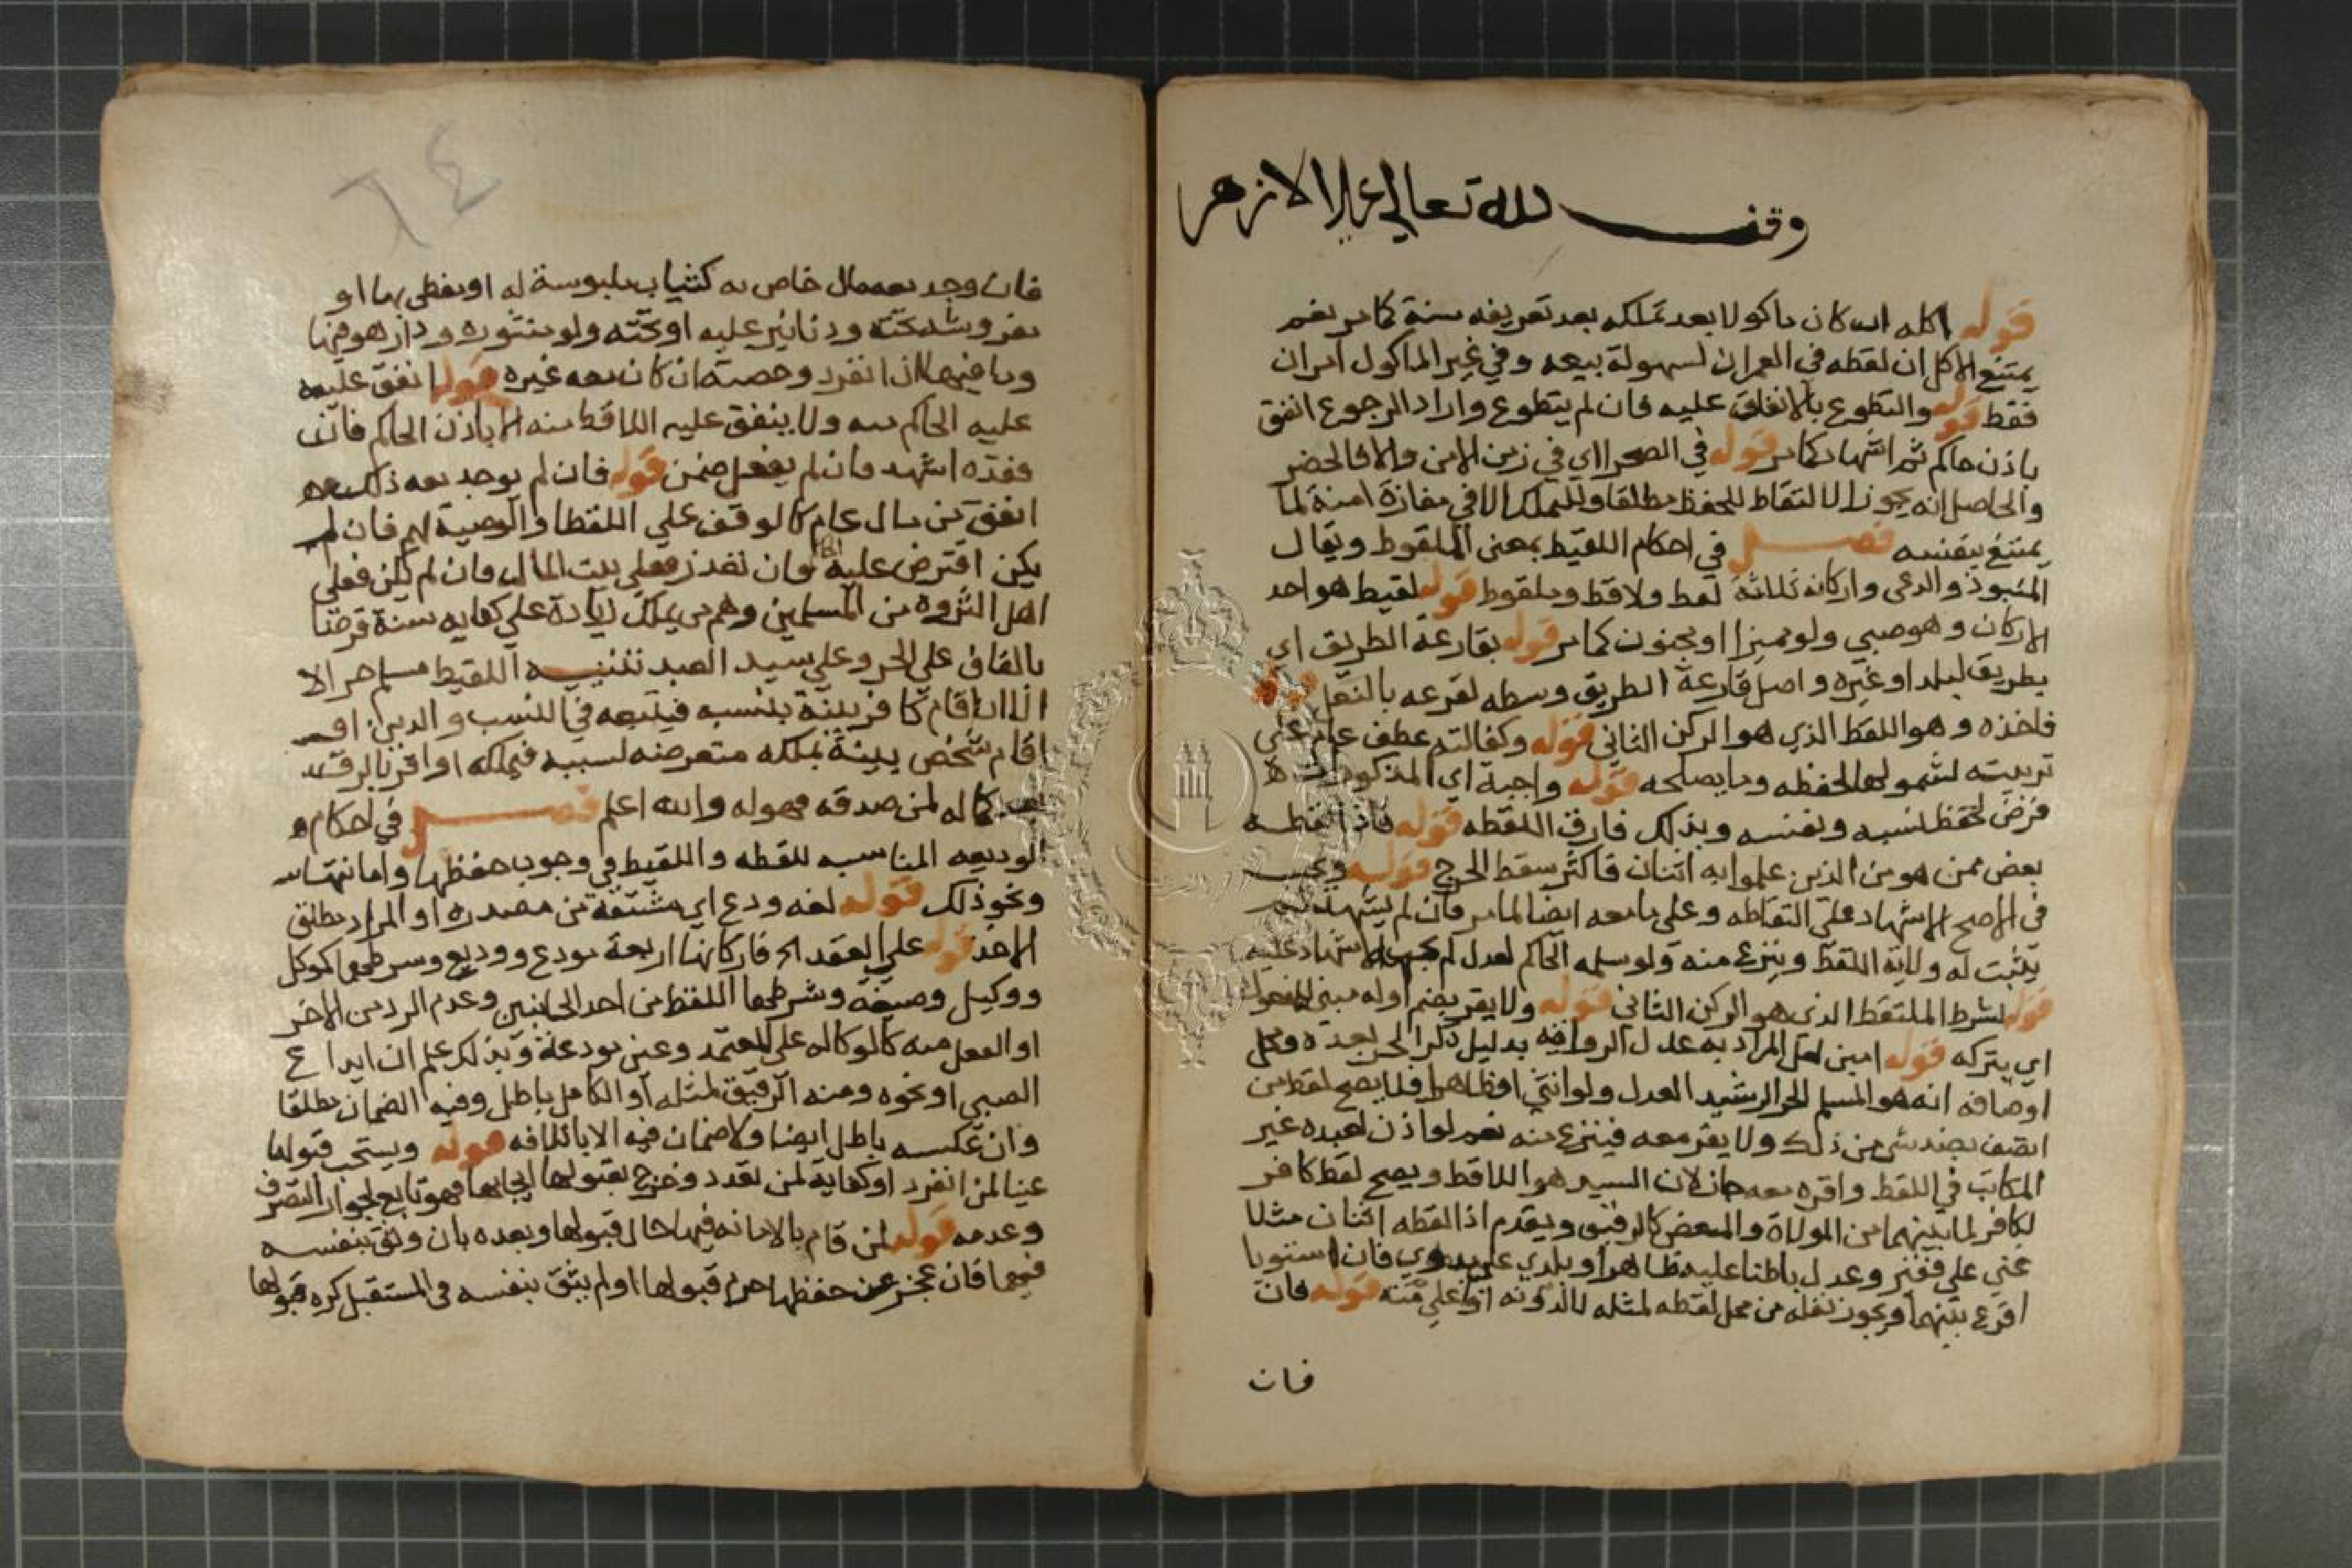 وقف لله تعالى على الازهر
قوله اكله ان كان ماكولا بعد تملكه بعد تعريفه سنة كما مر نعم
يمتنع الاكل ان لقطه في العمران لسهولة بيعه وفي غير الماكول امران
فقط قوله والتطوع بالانفاق عليه فان لم يتطوع واراد الرجوع انفق
باذن حاكم ثم اشهاد كما مر قوله في الصحرا اي في زمن الامن والا فالحضر
والحاصل انه يجوز الالتقاط للحفظ مطلقا وللتملك الا في مفازة امنة لما
يمتنع بنفسه فصل في احكام اللقيط بمعنى الملقوط ويقال
المنبوذ والدعى واركانه ثلاثة لقط ولاقط وملقوط قوله لقيط هو احد
الاركان وهو صبي ولو مميزا او مجنون كما مر قوله بقارعة الطريق اي
بطريق لبلد او غيره واصل قارعة الطريق وسطه لقرعه بالنعل قوله
فاخذه وهو اللقط الذي هو الركن الثاني قوله وكفالته عطف عام على
تربيته لشمولها لحفظه وما يصلحه قوله واجبة اي المذكورات لا
فرض لحفظ نسبه ونفسه وبذلك فارق اللقطه قوله فاذا التقطه
بعض ممن هو من الذين علموا به اثنان فاكثر سقط الحرج قوله ويجب
في الاصح الاشهاد على التقاطه وعلى ما معه ايضا لما مر فان لم يشهد لم
يثبت له ولاية اللقط وينزع منه ولو سلمه الحاكم لعدل لم يجب الاشهاد عليه
قوله لشرط الملتقط الذي هو الركن الثاني قوله ولا يقر بضم اوله مبنى للمفعول
اي يترك قوله امين لعل المراد به عدل الرواية بدليل ذكر الحر بعده وكل
اوصافه انه هو المسلم الحر الرشيد العدل ولو انثى او ظاهرا فلا يصح لقط من
اتصف بضد شي من ذلك ولا يقر معه فينزع منه نعم لو اذن لعبده غير
المكاتب في اللقط واقره معه جاز لان السيد هو اللاقط ويصح لقط كافر
لكافر لما بينهما من الموالاة والمبعض كالرقيق ويقدم اذا لقطه اثنان مثلا
غني على فقير وعدل باطنا عليه ظاهرا وبلدي على بدوي فان استويا
اقرع بينهما ويجوز نقله من محل لقطه لمثله قوله فان
فان
٦٤
فان وجد معه مال خاص به كثياب ملبوسة له او مغطى بها او
مفروشة تحته ودنانير عليه او تحته ولو منثورة ودار هو فيها
وما فيها ان انفرد وحصته ان كان معه غيره قوله انفق عليه
عليه الحاكم منه ولا ينفق عليه اللاقط منه الا باذن الحاكم فان
فقده اشهد فان لم يفعل ضمن قوله فان لم يوجد معه ذلك
انفق من مال عام كالوقف على اللقطا والوصية لهم فان لم
يكن اقترض عليه الحاكم وان تعذر فعلى بيت المال فان لم يكن فعلى
اهل الثروه من المسلمين وهم من يملك زيادة على كفايه سنة قرضا
بالقاف على الحر وعلى سيد العبد تنبيه اللقيط مسلم حر الا
ان اقام كافر بينة بنسبه فيتبعه في النسب والدين او
اقام شخص بينة بملكه متعرضه لسببه فيملكه او اقر بالرق بعد
كماله لمن صدقه فهو له والله اعلم فصل في احكام
الوديعه المناسبه للقطه واللقيط في وجوب حفظها وامانتها
ونحو ذلك قوله لغه ودع اي مشتقة من مصدره او المراد مطلق
الاخذ قوله على العقد الخ فاركانها اربعة مودع ووديع وشرطهما كموكل
ووكيل وصيغه وشرطهما اللفظ من احد الجانبين وعدم الرد من الاخر
او الفعل منه كالوكاله على المعتمد وعين مودعة وبذلك علم ان ايداع
الصبي او نحوه ومنه الرقيق لمثله او الكامل باطل وفيه الضمان مطلقا
وان عكسه باطل ايضا ولا ضمان فيه الا باتلافه قوله ويستحب قبولها
عينا لمن انفرد او كفاية لمن تعدد وخرج بقبولها ايجابها فهو تابع لجواز التصرف
وعدمه قوله لمن قام بالامانه فيها حال قبولها وبعده بان وثق بنفسه
فيهما فان عجز عن حفظها حرم قبولها او لم يثق بنفسه في المستقبل كره قبولها